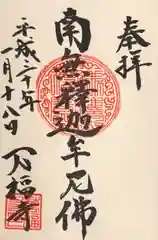 奉拝
南無釋迦牟尼佛
平成二十年
一月十八日
万福寺